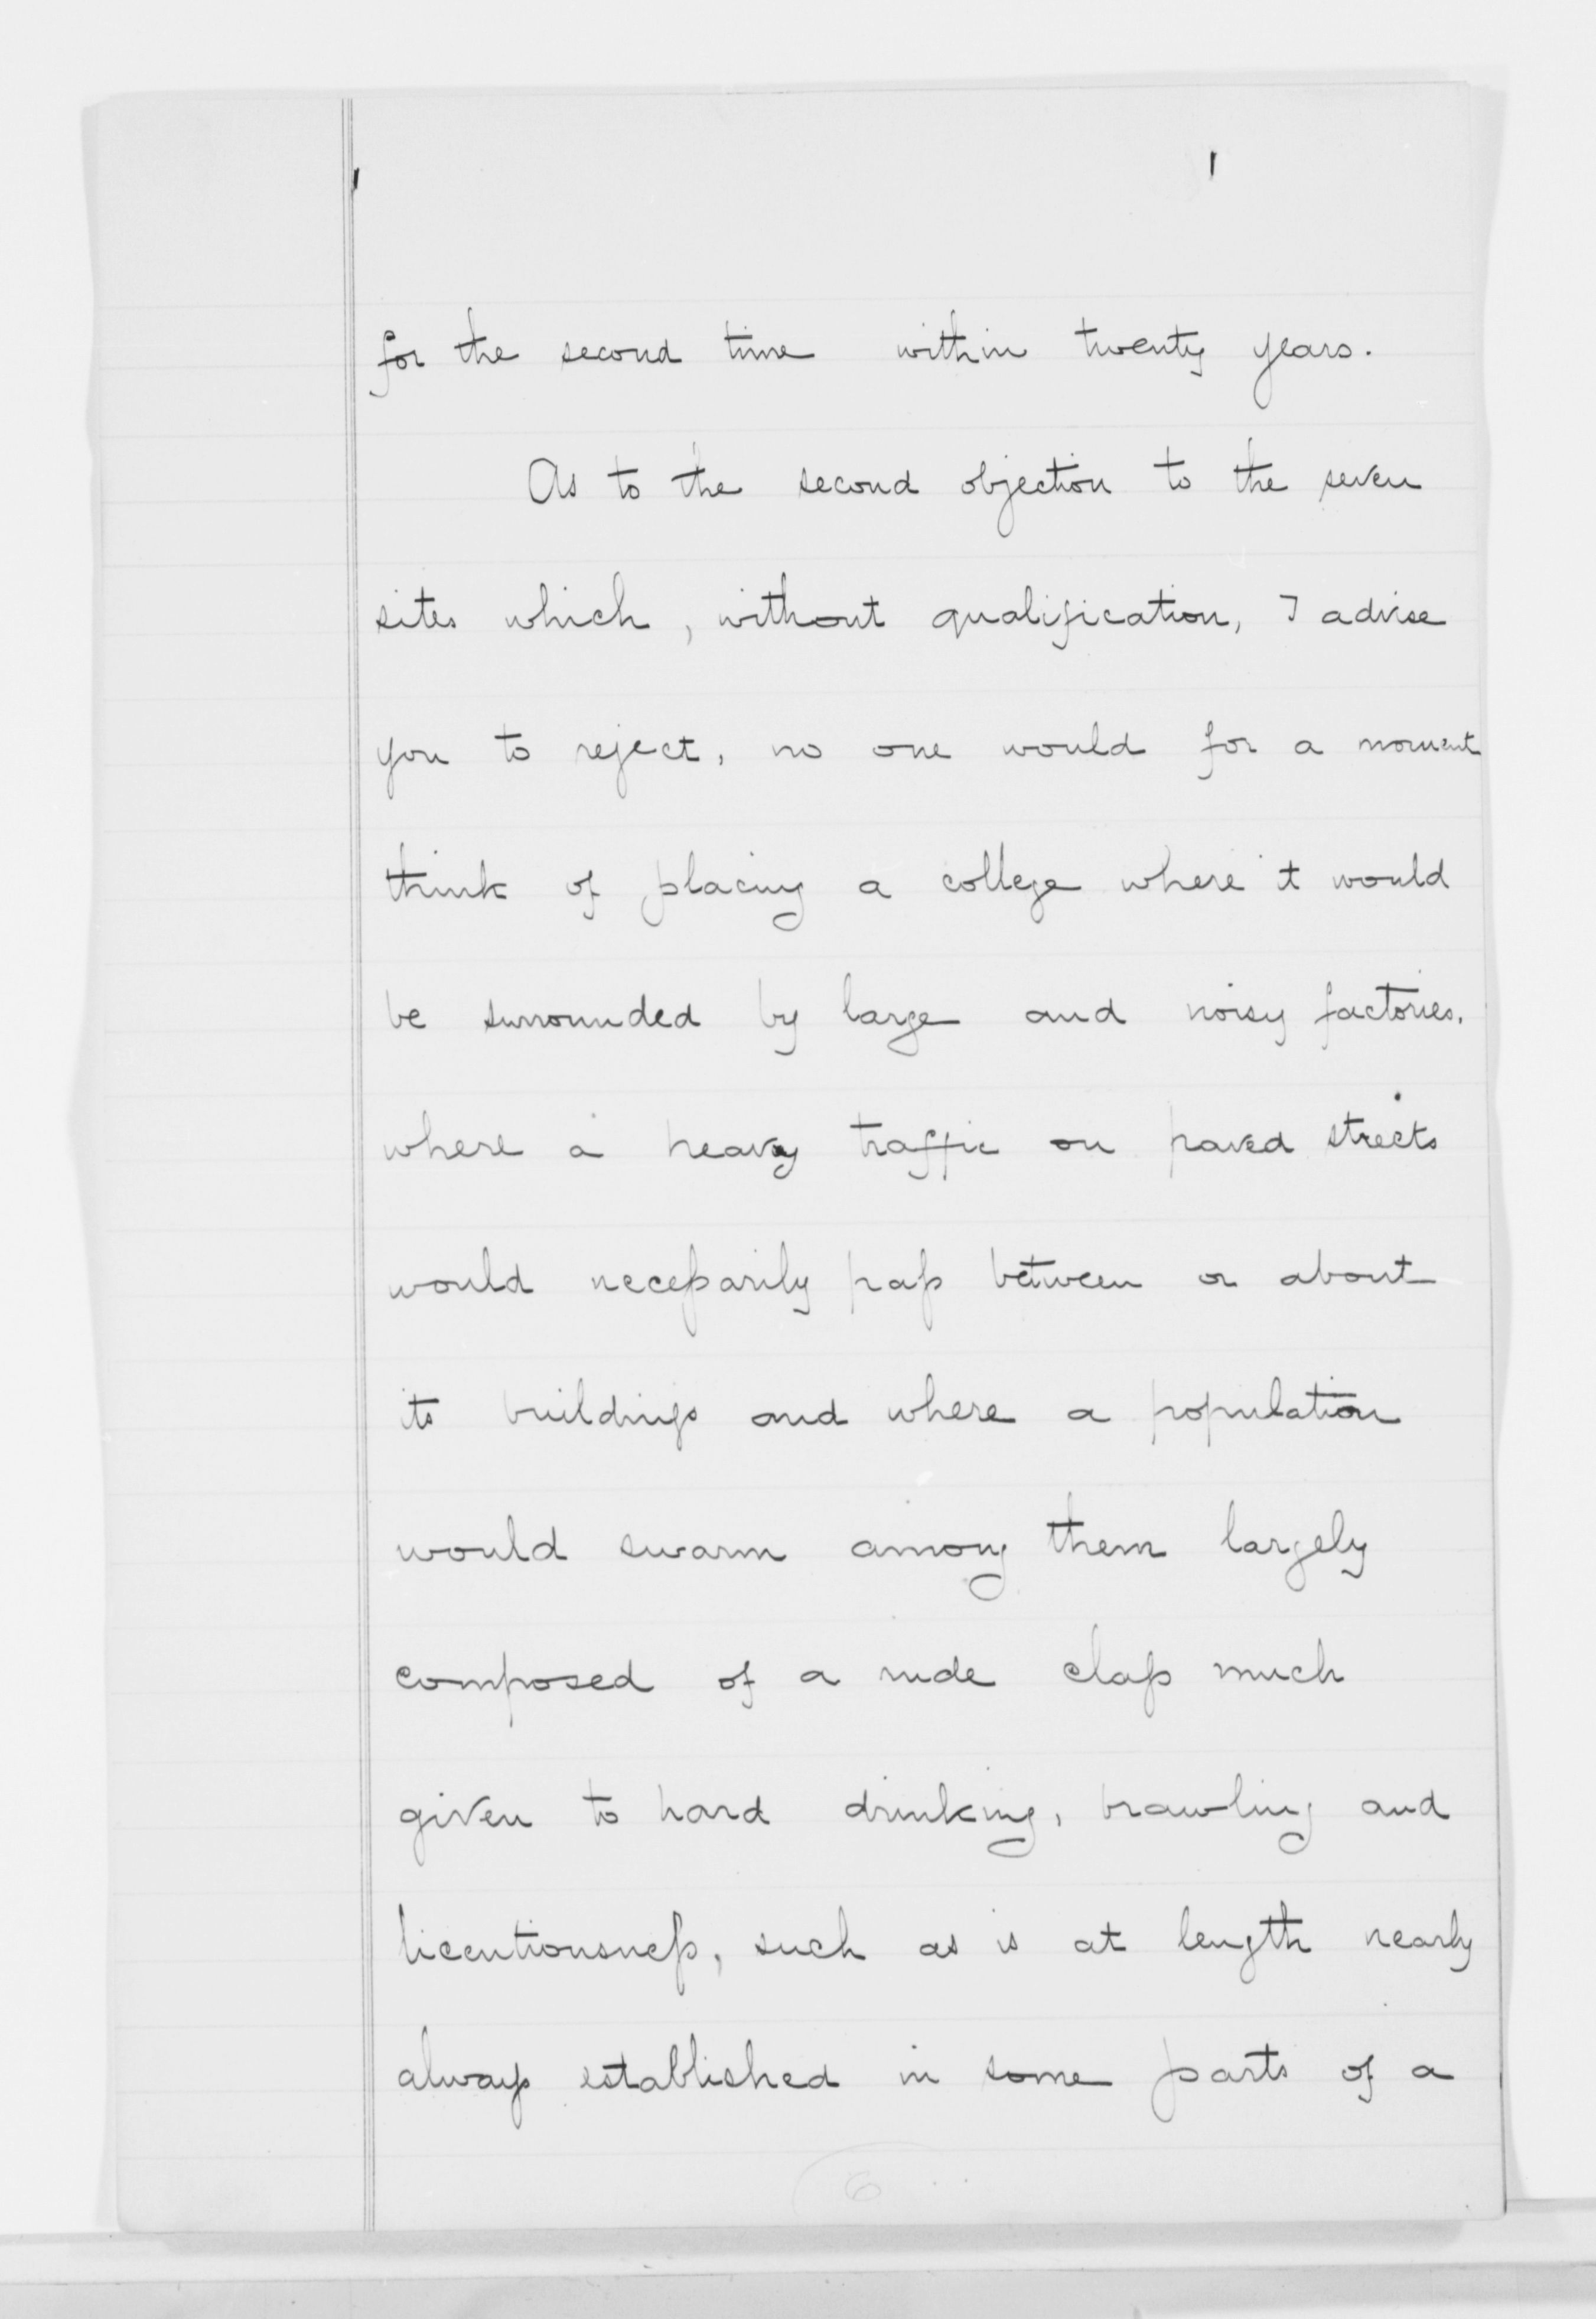 for the second time within twenty years.
As to the second objection to the seven
sites which, without qualification, I advise
you to reject, no one would for a moment
think of placing a college where it would
be surrounded by large and noisy factories,
where a heavy traffic on paved streets
would necessarily pass between or about
its buildings and where a population
would swarm among them largely
composed of a rude class much
given to hard drinking, brawling and
licentiousness, such as is at length nearly
always established in some parts of a
6